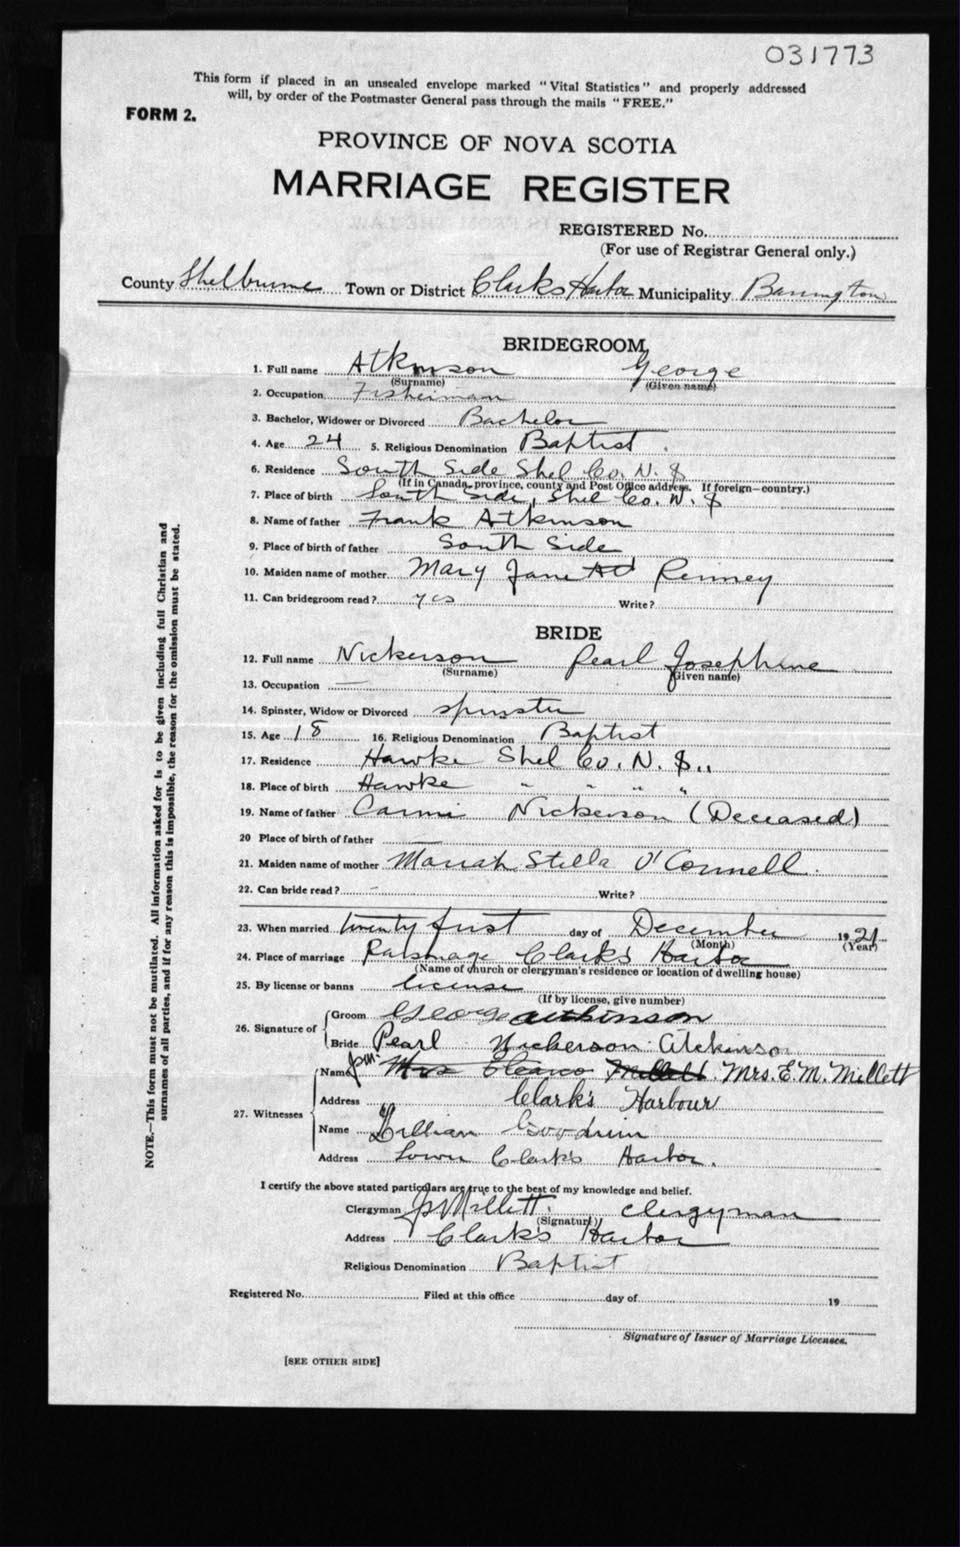 031773
This form if placed in an unsealed envelope marked "Vital Statistics" and properly addressed
will, by order of the Postmaster General pass through the mails "FREE."
FORM 2.
PROVINCE OF NOVA SCOTIA
MARRIAGE REGISTER
REGISTERED No.
(For use of Registrar General only.)
County Shelburne Town or District Clarks Harbor Municipality Barrington
BRIDEGROOM
1. Full name Atkinson George
(Surname) (Given name)
2. Occupation Fisherman
3. Bachelor, Widower or Divorced Bachelor
4. Age 24 5. Religious Denomination Baptist
6. Residence South Side Shel Co. N. S
(If in Canada, province, county and Post Office address. If foreign—country.)
7. Place of birth South Side, Shel Co. N. S
8. Name of father Frank Atkinson
9. Place of birth of father South Side
10. Maiden name of mother Mary Jane Penney
11. Can bridegroom read? yes Write?
BRIDE
12. Full name Nickerson Pearl Josephine
(Surname) (Given name)
13. Occupation —
14. Spinster, Widow or Divorced spinster
15. Age 18 16. Religious Denomination Baptist
17. Residence Hawke Shel Co. N. S.
18. Place of birth Hawke " " " "
19. Name of father Carmi Nickerson (Deceased)
20 Place of birth of father —
21. Maiden name of mother Mariah Stella O'Connell.
22. Can bride read? - Write?
23. When married twenty first day of December 1921
(Month) (Year)
24. Place of marriage Parsonage Clark's Harbor
(Name of church or clergyman's residence or location of dwelling house)
25. By license or banns license
(If by license, give number)
26. Signature of Groom George Atkinson
Bride Pearl Nickerson Atkinson
27. Witnesses Name Mrs Millett Mrs. E. M. Millett
Address Clark's Harbour
Name Lillian Goodwin
Address Lower Clark's Harbor.
I certify the above stated particulars are true to the best of my knowledge and belief.
Clergyman Millett. clergyman
(Signature)
Address Clark's Harbor
Religious Denomination Baptist
Registered No. Filed at this office day of 19
Signature of Issuer of Marriage Licenses.
[SEE OTHER SIDE]
NOTE.—This form must not be mutilated. All information asked for is to be given including full Christian and
surnames of all parties, and if for any reason this is impossible, the reason for the omission must be stated.